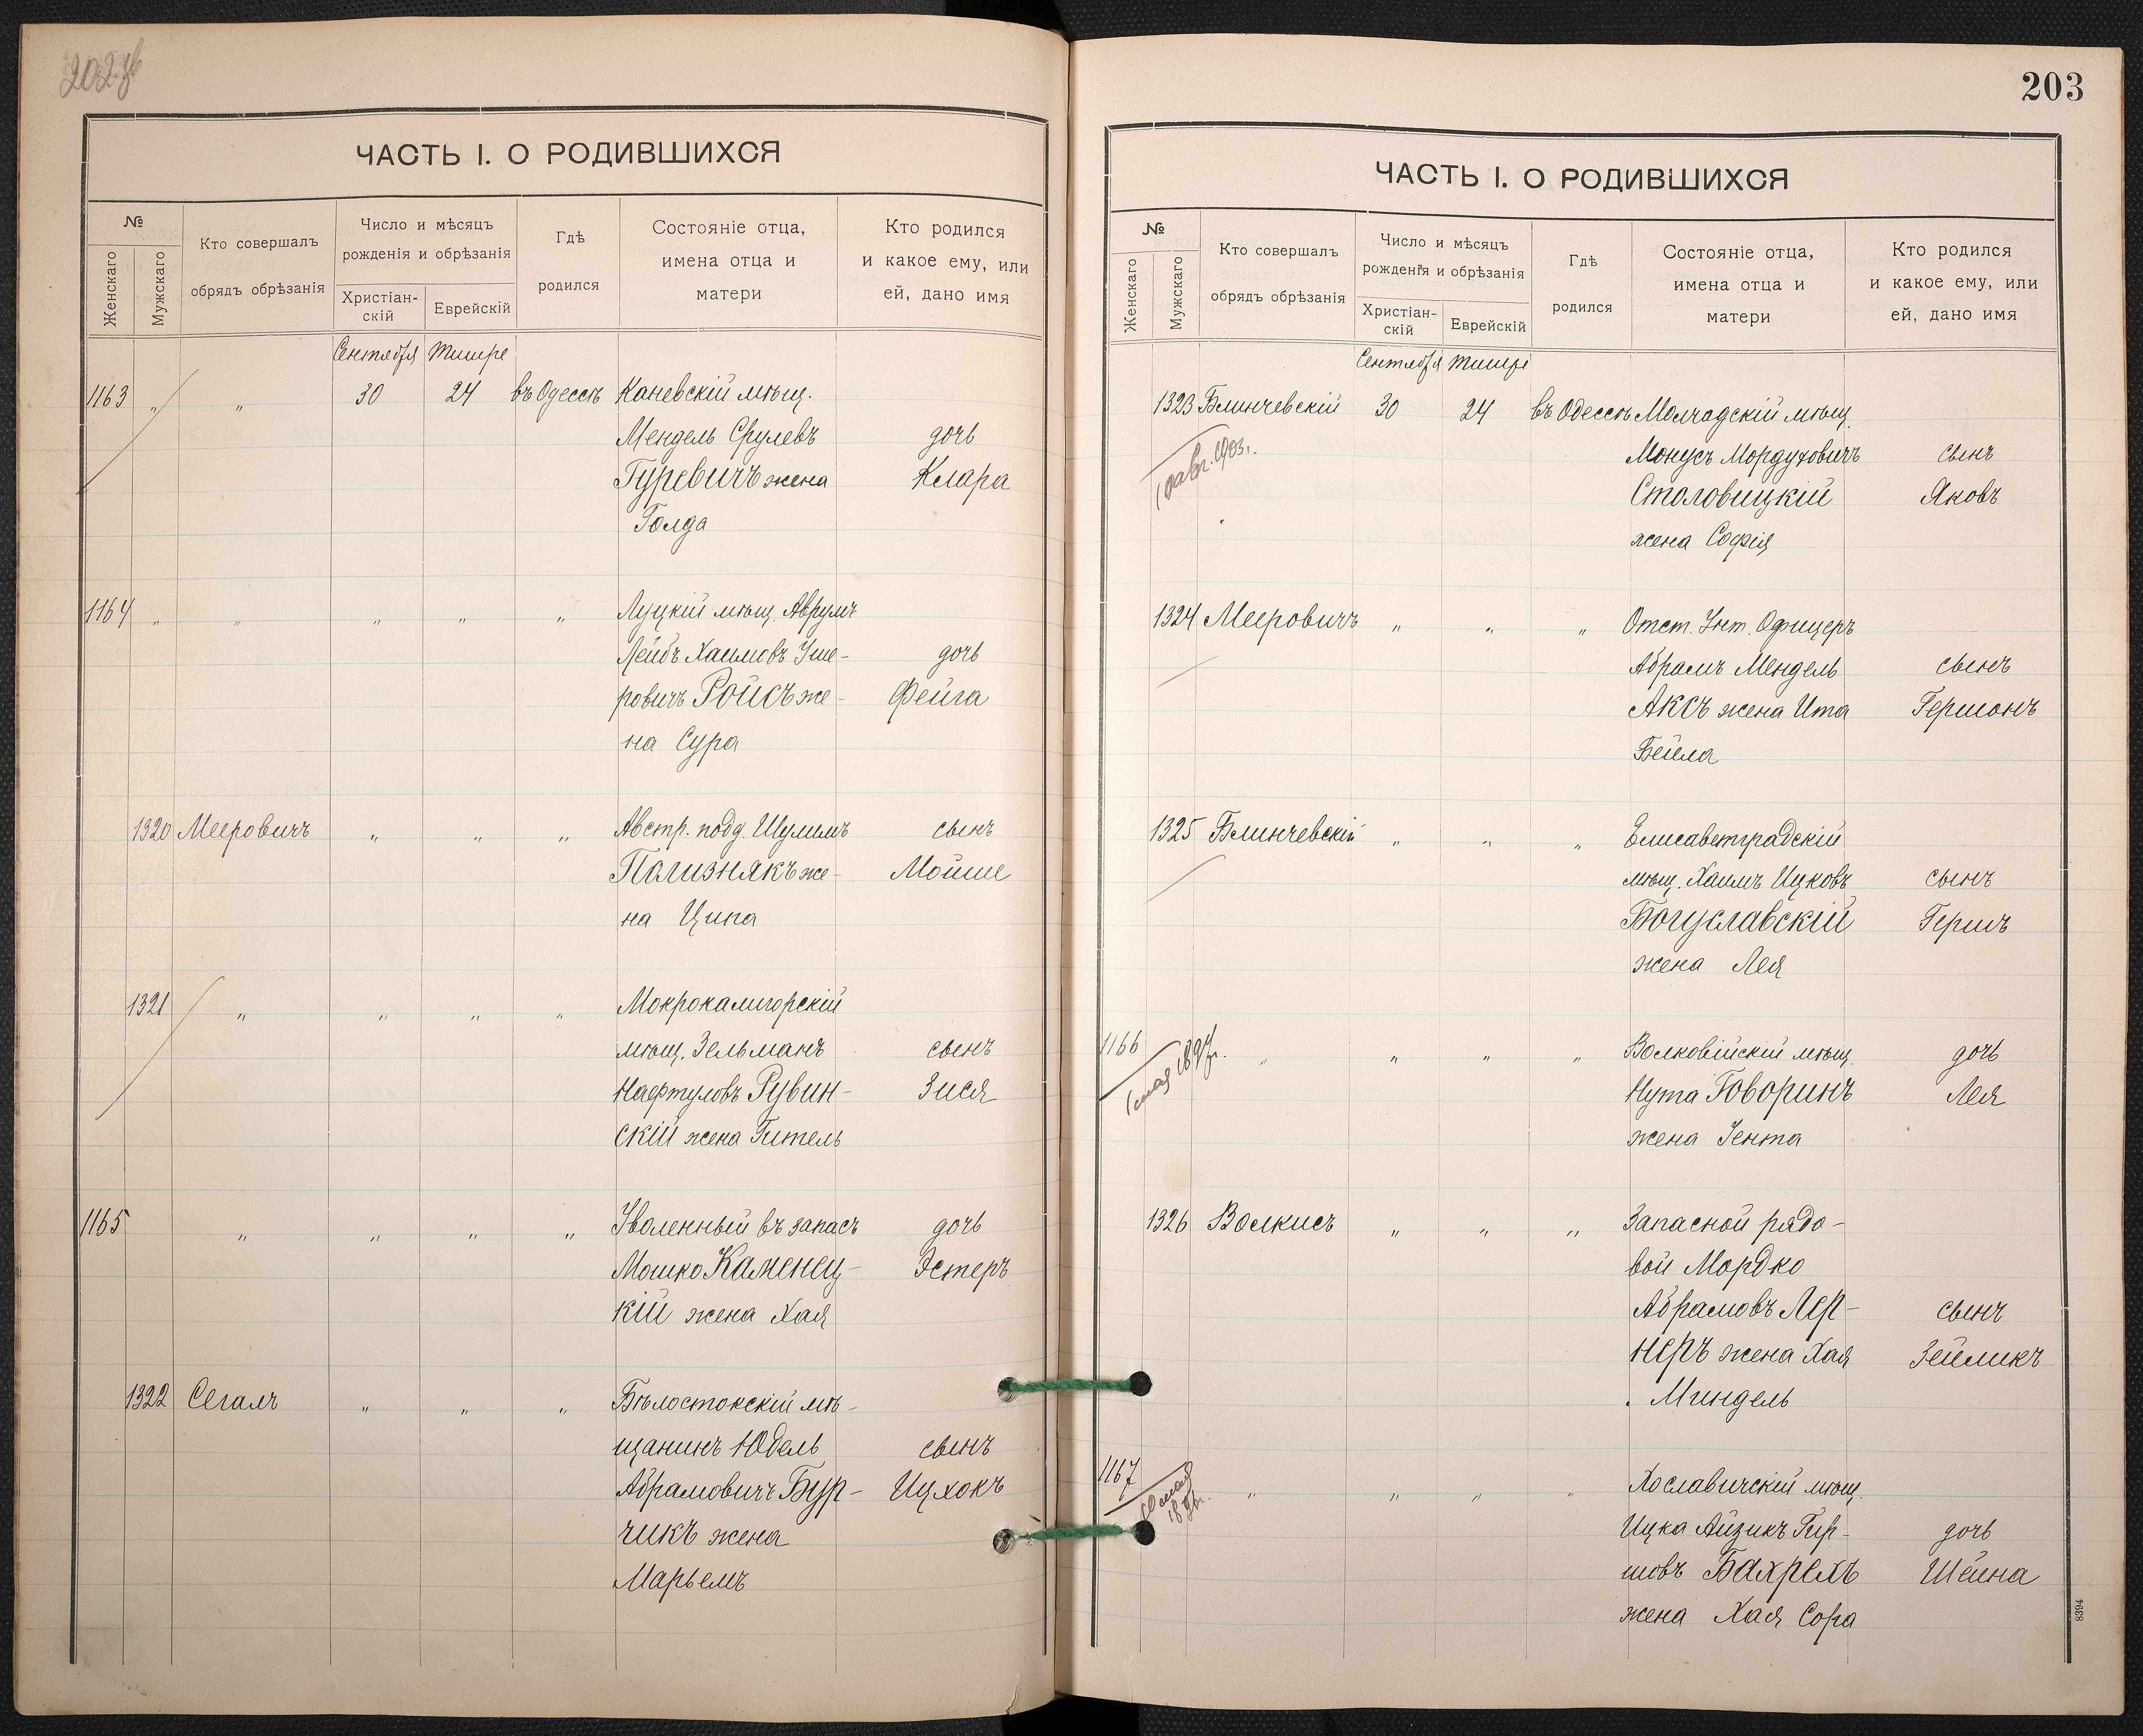 ЧАСТЬ I. О РОДИВШИХСЯ
№
Женскаго
Мужскаго
Кто совершалъ
обрядъ обрѣзанія
Число и мѣсяцъ
рожденія и обрѣзанія
Христіан-
скій
Еврейскій
Гдѣ
родился
Состояніе отца,
имена отца и
матери
Кто родился
и какое ему, или
ей, дано имя
Сентября Тишре
1163 " " 30 24 въ Одессѣ Каневскій мѣщ.
Мендель Срулевъ дочь
Гуревичъ жена Клара
Голда
1164 " " " " " Луцкій мѣщ. Аврумъ
Лейбъ Хаимовъ Уше- дочь
ровичъ Ройсъ же- Фейга
на Сура
1320 Мееровичъ " " " Австр. подд. Шулимъ сынъ
Полизнякъ же- Мойше
на Ципа
1321 " " " " Мокрокалигорскій
мѣщ. Зельманъ сынъ
Нафтуловъ Рувин- Зися
скій жена Гитель
1165 " " " " Уволенный въ запасъ дочь
Мошко Каменец- Эстеръ
кій жена Хая
1322 Сегалъ " " " Бѣлостокскій мѣ-
щанинъ Юдель сынъ
Абрамовичъ Бур- Ицхокъ
чикъ жена
Марьемъ
203
ЧАСТЬ I. О РОДИВШИХСЯ
№
Женскаго
Мужскаго
Кто совершалъ
обрядъ обрѣзанія
Число и мѣсяцъ
рожденія и обрѣзанія
Христіан-
скій
Еврейскій
Гдѣ
родился
Состояніе отца,
имена отца и
матери
Кто родился
и какое ему, или
ей, дано имя
Сентября Тишре
1323 Блинчевскій 30 24 въ Одессѣ Молчадскій мѣщ.
Монусъ Мордуховичъ сынъ
Столовицкій Яковъ
жена Софія
1324 Мееровичъ " " " Отст. Унт. Офицеръ
Абрамъ Мендель сынъ
Аксъ жена Ита Гершонъ
Бейла
1325 Блинчевскій " " " Елисаветградскій
мѣщ. Хаимъ Ицковъ сынъ
Богуславскій Гершъ
жена Лея
1166 " " " " Волковійскій мѣщ. дочь
Нута Говоринъ Лея
жена Іента
1326 Волкисъ " " " Запасной рядо-
вой Мордко
Абрамовъ Лер- сынъ
неръ жена Хая Зейликъ
Миндель
1167 " " " " Хославичскій мѣщ.
Ицка Айзикъ Гир- дочь
шовъ Бахрехъ Шейна
жена Хая Сора
8394